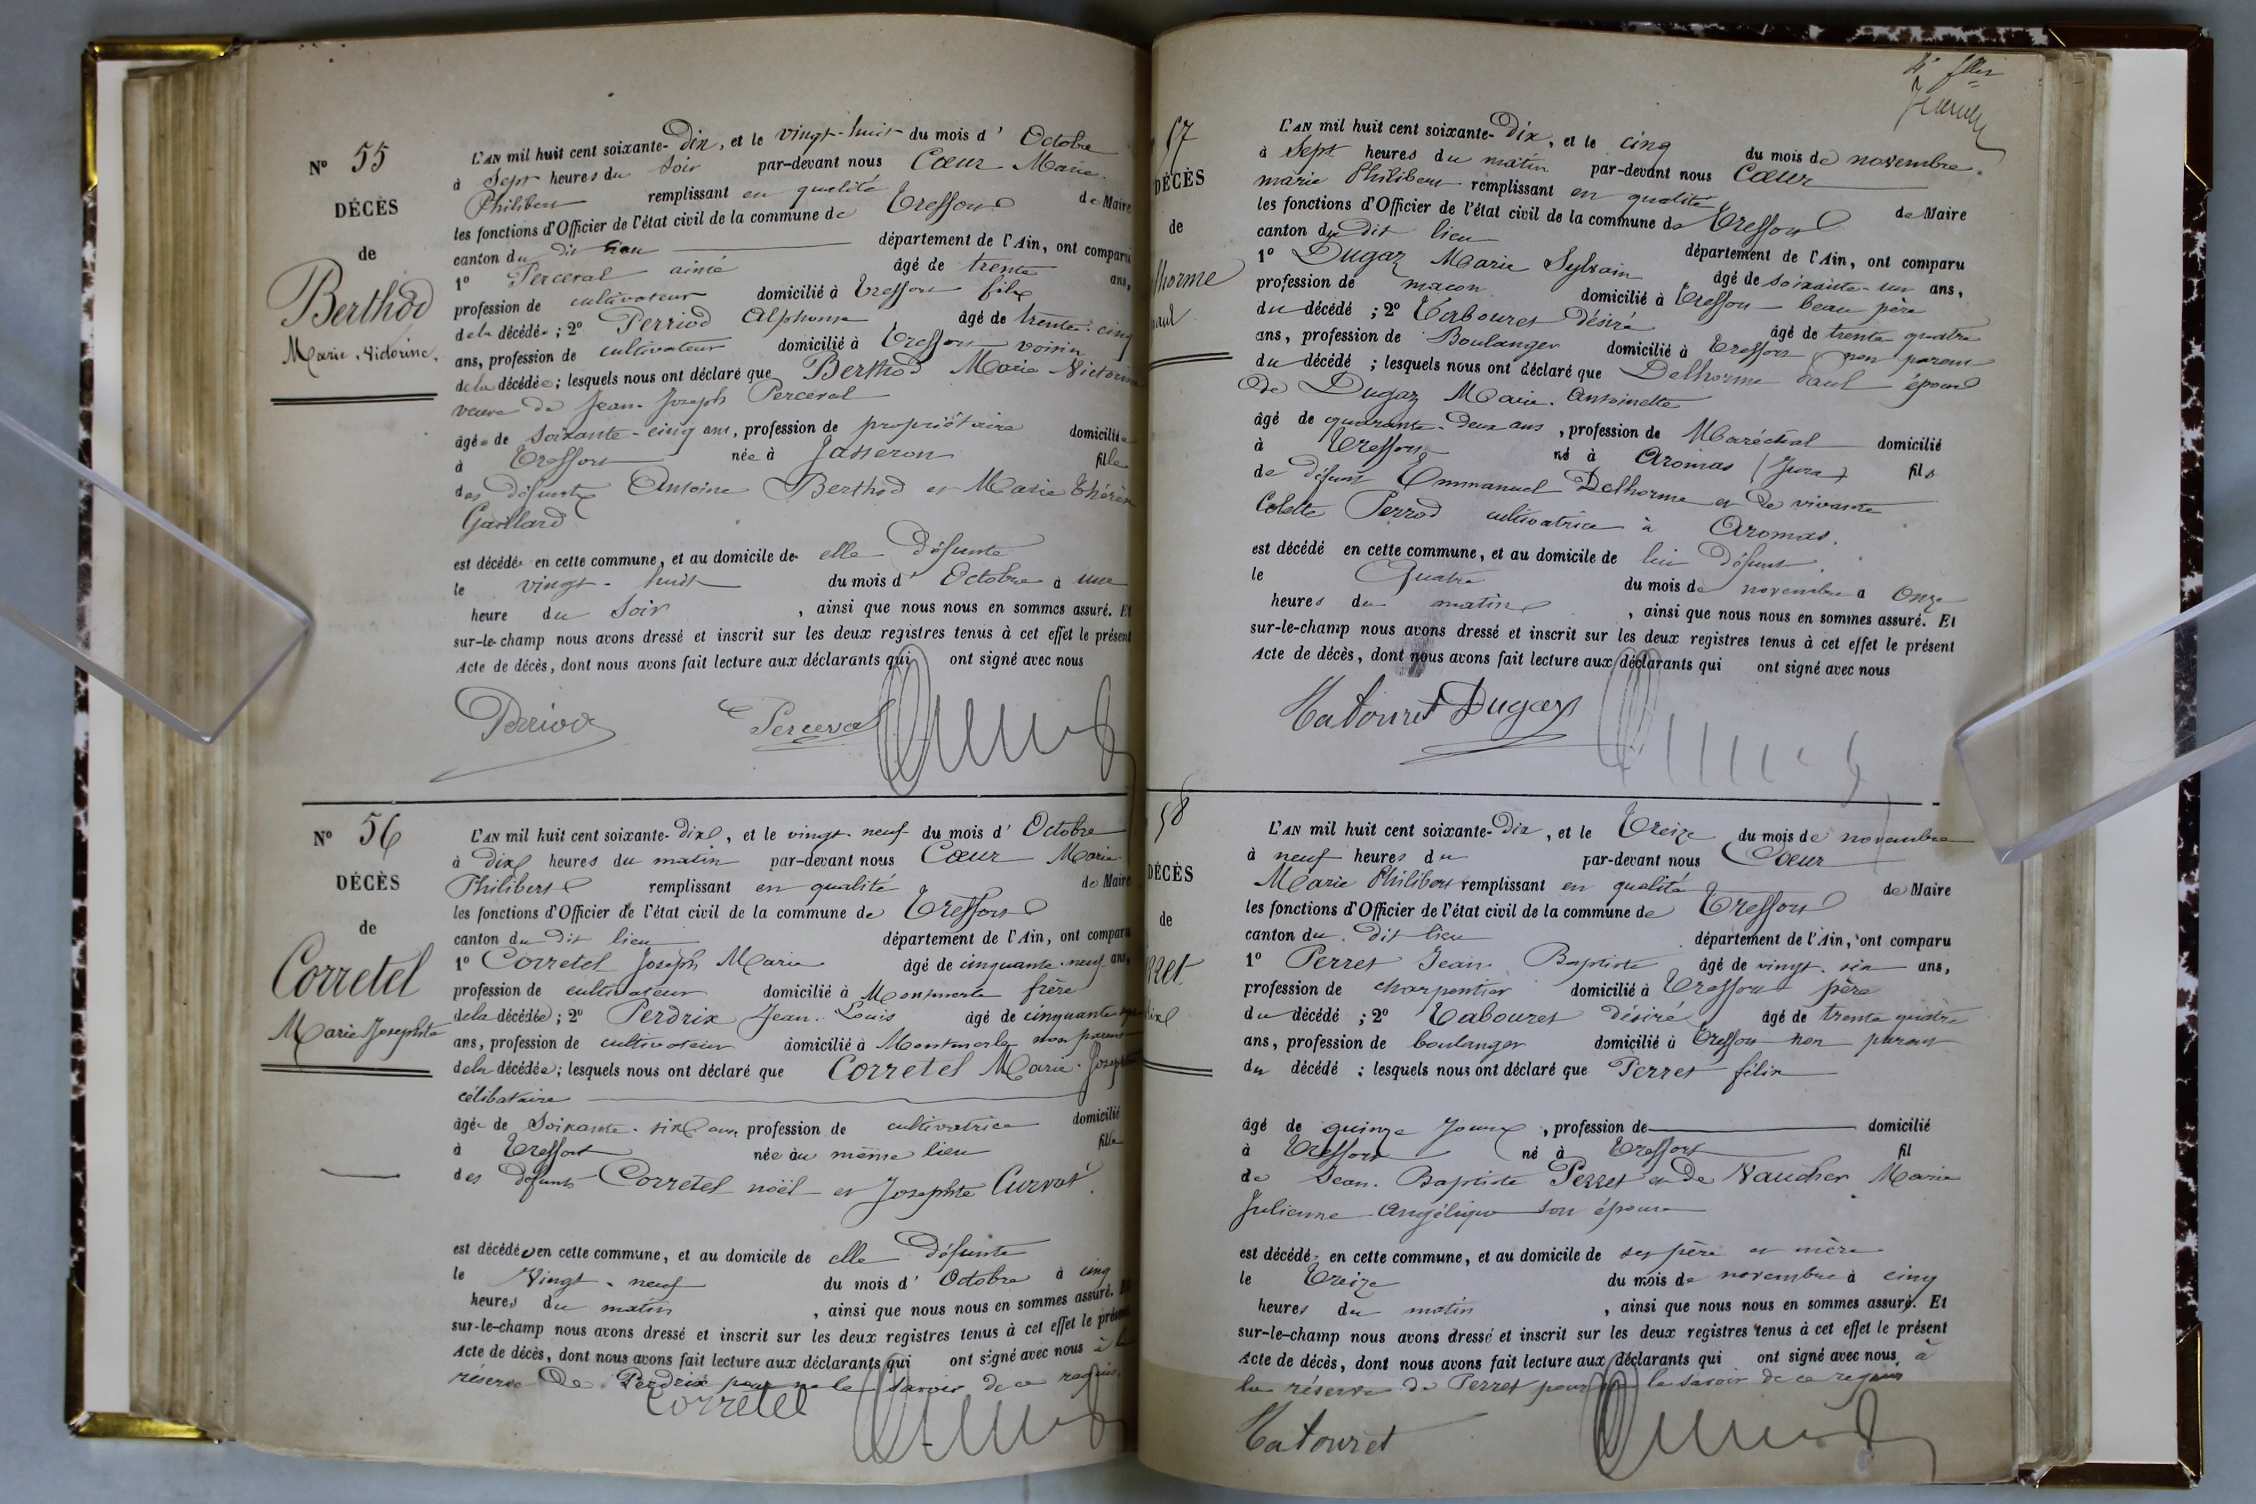 N° 55
DÉCÈS
de
Berthod
Marie Victorine
L'AN mil huit cent soixante-Dix, et le vingt-huit du mois d' Octobre
à Sept heures du soir par-devant nous Cœur Marie
Philibert remplissant en qualité de Maire
les fonctions d'Officier de l'état civil de la commune de Treffort
canton du dit lieu département de l'Ain, ont comparu
1° Perceval aimé âgé de trente ans,
profession de cultivateur domicilié à Treffort fils
de la décédée ; 2° Perriod Alphonse âgé de trente-cinq
ans, profession de cultivateur domicilié à Treffort voisin
de la décédée ; lesquels nous ont déclaré que Berthod Marie Victorine
veuve de Jean-Joseph Perceval
âgée de soixante-cinq ans, profession de propriétaire domiciliée
à Treffort née à Jasseron fille
des défunts Antoine Berthod et Marie Thérèse
Gaillard
est décédée en cette commune, et au domicile de elle Défunte
le vingt-huit du mois d' Octobre à une
heure du Soir , ainsi que nous nous en sommes assuré. Et
sur-le-champ nous avons dressé et inscrit sur les deux registres tenus à cet effet le présent
Acte de décès, dont nous avons fait lecture aux déclarants qui ont signé avec nous
Perriod Perceval
N° 56
DÉCÈS
de
Corretel
Marie Josephte
L'AN mil huit cent soixante-dix, et le vingt-neuf du mois d' Octobre
à Dix heures du matin par-devant nous Cœur Marie
Philibert remplissant en qualité de Maire
les fonctions d'Officier de l'état civil de la commune de Treffort
canton du dit lieu département de l'Ain, ont comparu
1° Corretel Joseph Marie âgé de cinquante-neuf ans,
profession de cultivateur domicilié à Montmerle frère
de la décédée ; 2° Perdrix Jean-Louis âgé de cinquante
ans, profession de cultivateur domicilié à Montmerle non parent
de la décédée ; lesquels nous ont déclaré que Corretel Marie-Josephte
célibataire
âgée de Soixante-six ans profession de cultivatrice domicilié
à Treffort née au même lieu fille
des défunts Corretel noël et Josephte Curvat
est décédée en cette commune, et au domicile de elle Défunte
le Vingt-neuf du mois d' Octobre à cinq
heures du matin , ainsi que nous nous en sommes assuré. Et
sur-le-champ nous avons dressé et inscrit sur les deux registres tenus à cet effet le présent
Acte de décès, dont nous avons fait lecture aux déclarants qui ont signé avec nous à la
réserve de Perdrix pour ne le savoir de ce requis
Corretel
57
DÉCÈS
de
lhorme
aul
L'AN mil huit cent soixante-Dix, et le cinq du mois de novembre
à Sept heures du matin par-devant nous Cœur
marie Philibert remplissant en qualité de Maire
les fonctions d'Officier de l'état civil de la commune de Treffort
canton du dit lieu département de l'Ain, ont comparu
1° Dugaz Marie Sylvain âgé de soixante-un ans,
profession de macon domicilié à Treffort beau père
du décédé ; 2° Tabouret désiré âgé de trente quatre
ans, profession de Boulanger domicilié à Treffort non parent
du décédé ; lesquels nous ont déclaré que Delhorme Paul époux
de Dugaz Marie-Antoinette
âgé de quarante-deux ans , profession de Maréchal domicilié
à Treffort né à Aromas (Jura) fils
de défunt Emmanuel Delhorme et de vivante
Colette Perrod cultivatrice à Aromas.
est décédé en cette commune, et au domicile de lui Défunt
le Quatre du mois de novembre à Onze
heures du matin , ainsi que nous nous en sommes assuré. Et
sur-le-champ nous avons dressé et inscrit sur les deux registres tenus à cet effet le présent
Acte de décès, dont nous avons fait lecture aux déclarants qui ont signé avec nous
Tabouret Dugaz
58
DÉCÈS
de
rret
L'AN mil huit cent soixante-Dix, et le Treize du mois de novembre
à neuf heures du par-devant nous Cœur
Marie Philibert remplissant en qualité de Maire
les fonctions d'Officier de l'état civil de la commune de Treffort
canton du dit lieu département de l'Ain, ont comparu
1° Perret Jean Baptiste âgé de vingt-six ans,
profession de charpentier domicilié à Treffort père
du décédé ; 2° Tabouret désiré âgé de trente quatre
ans, profession de boulanger domicilié à Treffort non parent
du décédé ; lesquels nous ont déclaré que Perret félix
âgé de quinze Jours , profession de domicilié
à Treffort né à Treffort fil
de Jean-Baptiste Perret et de Vaucher Marie
Julienne Angélique son épouse
est décédé en cette commune, et au domicile de ses père et mère
le Treize du mois de novembre à cinq
heures du matin , ainsi que nous nous en sommes assuré. Et
sur-le-champ nous avons dressé et inscrit sur les deux registres tenus à cet effet le présent
Acte de décès, dont nous avons fait lecture aux déclarants qui ont signé avec nous, à
la réserve de Perret pour ne le savoir de ce requis
Tabouret